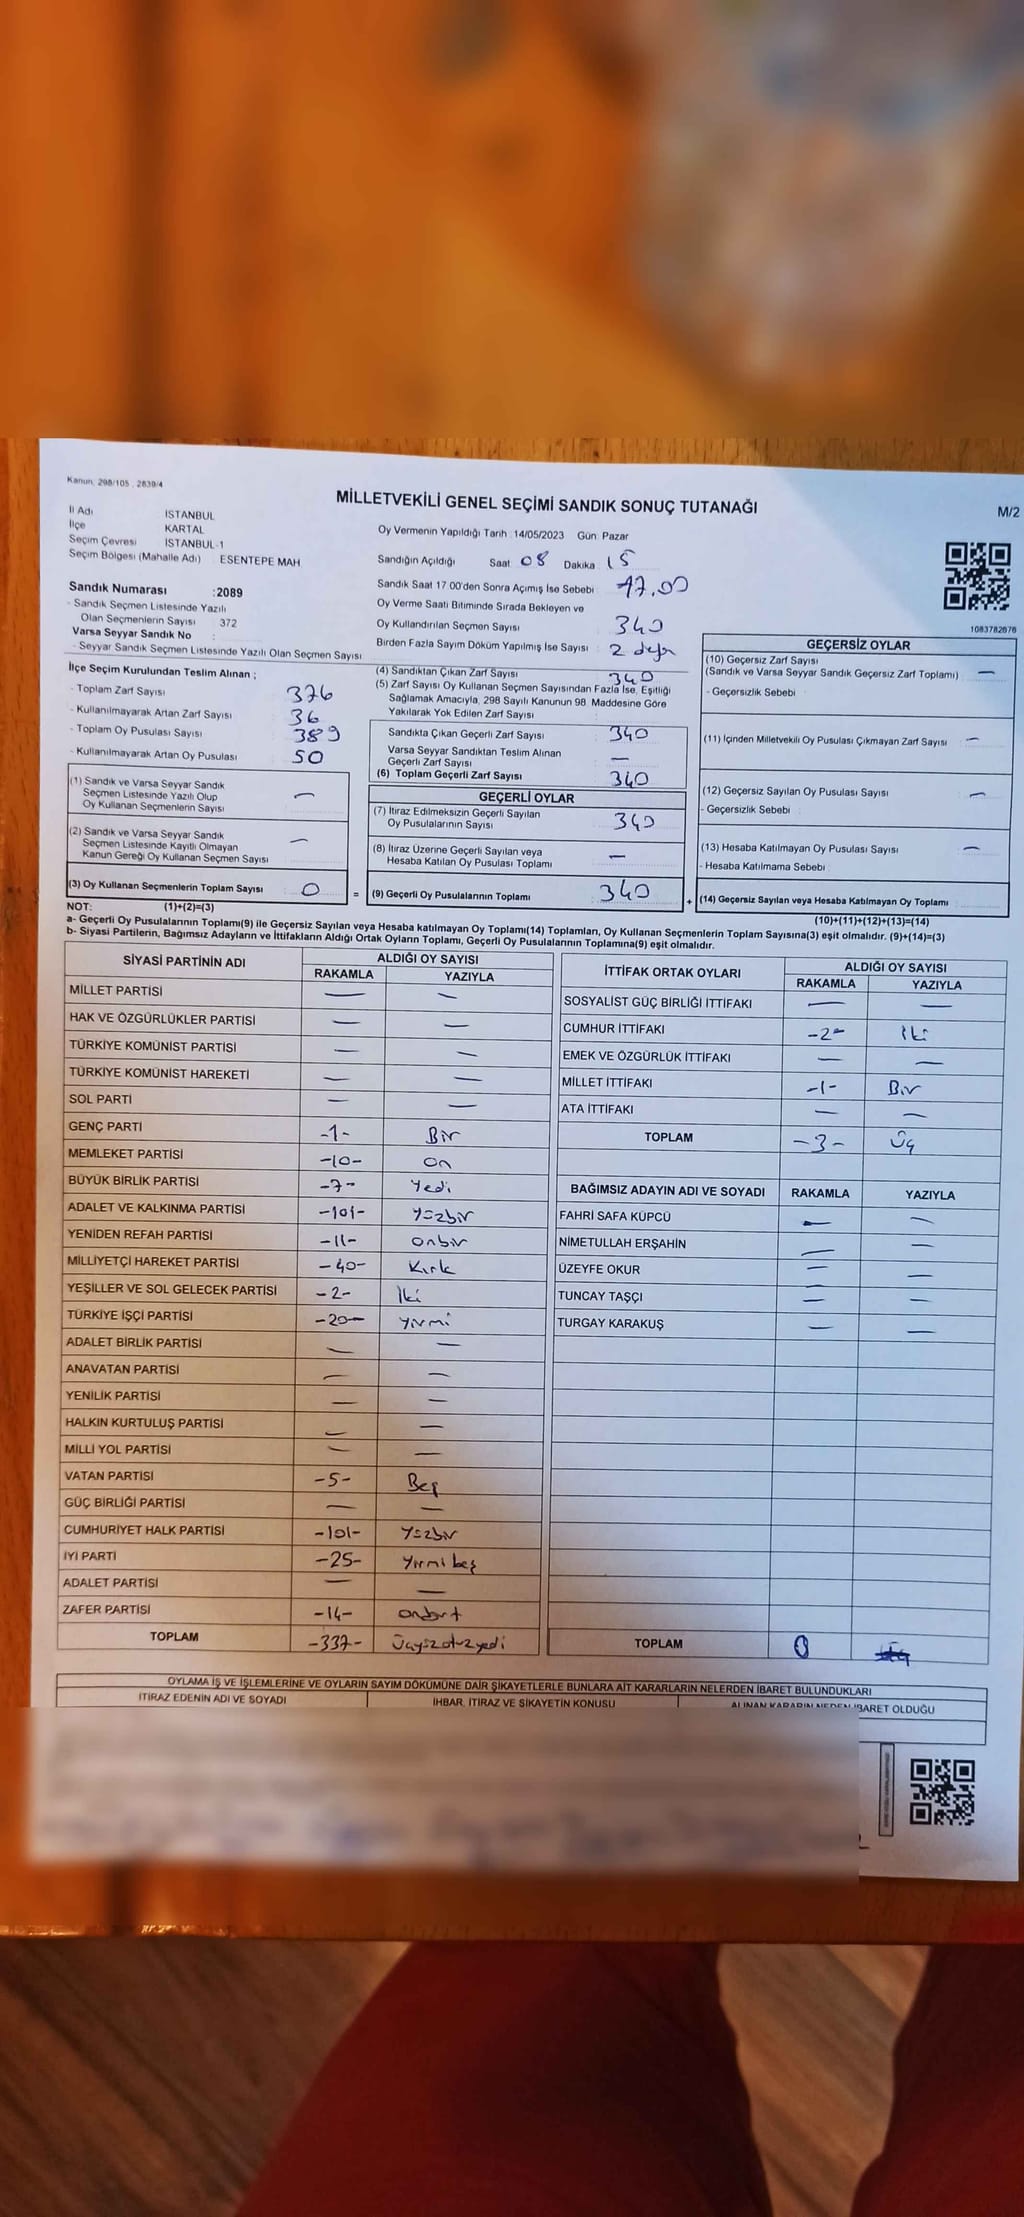 Kanun: 298/105 , 2839/4
MİLLETVEKİLİ GENEL SEÇİMİ SANDIK SONUÇ TUTANAĞI
M/2
İl Adı İSTANBUL
İlçe KARTAL
Seçim Çevresi İSTANBUL-1
Seçim Bölgesi (Mahalle Adı) : ESENTEPE MAH
Oy Vermenin Yapıldığı Tarih :14/05/2023 Gün: Pazar
Sandığın Açıldığı Saat 08 Dakika 15
Sandık Saat 17.00'den Sonra Açımış İse Sebebi : 17.00
Oy Verme Saati Bitiminde Sırada Bekleyen ve
Oy Kullandırılan Seçmen Sayısı : 340
Birden Fazla Sayım Döküm Yapılmış İse Sayısı : 2 defa
1083782676
Sandık Numarası :2089
- Sandık Seçmen Listesinde Yazılı
Olan Seçmenlerin Sayısı : 372
Varsa Seyyar Sandık No :
- Seyyar Sandık Seçmen Listesinde Yazılı Olan Seçmen Sayısı
İlçe Seçim Kurulundan Teslim Alınan ;
- Toplam Zarf Sayısı 376
- Kullanılmayarak Artan Zarf Sayısı 36
- Toplam Oy Pusulası Sayısı 389
- Kullanılmayarak Artan Oy Pusulası 50
(1) Sandık ve Varsa Seyyar Sandık
Seçmen Listesinde Yazılı Olup
Oy Kullanan Seçmenlerin Sayısı —
(2) Sandık ve Varsa Seyyar Sandık
Seçmen Listesinde Kayıtlı Olmayan
Kanun Gereği Oy Kullanan Seçmen Sayısı —
(3) Oy Kullanan Seçmenlerin Toplam Sayısı 0 =
(4) Sandıktan Çıkan Zarf Sayısı 340
(5) Zarf Sayısı Oy Kullanan Seçmen Sayısından Fazla İse, Eşitliği
Sağlamak Amacıyla, 298 Sayılı Kanunun 98. Maddesine Göre
Yakılarak Yok Edilen Zarf Sayısı :
Sandıkta Çıkan Geçerli Zarf Sayısı 340
Varsa Seyyar Sandıktan Teslim Alınan
Geçerli Zarf Sayısı —
(6) Toplam Geçerli Zarf Sayısı 340
GEÇERLİ OYLAR
(7) İtiraz Edilmeksizin Geçerli Sayılan
Oy Pusulalarının Sayısı 340
(8) İtiraz Üzerine Geçerli Sayılan veya
Hesaba Katılan Oy Pusulası Toplamı —
(9) Geçerli Oy Pusulalarının Toplamı 340 +
GEÇERSİZ OYLAR
(10) Geçersiz Zarf Sayısı
(Sandık ve Varsa Seyyar Sandık Geçersiz Zarf Toplamı) —
- Geçersizlik Sebebi :
(11) İçinden Milletvekili Oy Pusulası Çıkmayan Zarf Sayısı —
(12) Geçersiz Sayılan Oy Pusulası Sayısı —
- Geçersizlik Sebebi :
(13) Hesaba Katılmayan Oy Pusulası Sayısı —
- Hesaba Katılmama Sebebi :
(14) Geçersiz Sayılan veya Hesaba Katılmayan Oy Toplamı
NOT: (1)+(2)=(3) (10)+(11)+(12)+(13)=(14)
a- Geçerli Oy Pusulalarının Toplamı(9) ile Geçersiz Sayılan veya Hesaba katılmayan Oy Toplamı(14) Toplamları, Oy Kullanan Seçmenlerin Toplam Sayısına(3) eşit olmalıdır. (9)+(14)=(3)
b- Siyasi Partilerin, Bağımsız Adayların ve İttifakların Aldığı Ortak Oyların Toplamı, Geçerli Oy Pusulalarının Toplamına(9) eşit olmalıdır.
SİYASİ PARTİNİN ADI ALDIĞI OY SAYISI
RAKAMLA YAZIYLA
MİLLET PARTİSİ — —
HAK VE ÖZGÜRLÜKLER PARTİSİ — —
TÜRKİYE KOMÜNİST PARTİSİ — —
TÜRKİYE KOMÜNİST HAREKETİ — —
SOL PARTİ — —
GENÇ PARTİ -1- Bir
MEMLEKET PARTİSİ -10- on
BÜYÜK BİRLİK PARTİSİ -7- Yedi
ADALET VE KALKINMA PARTİSİ -101- Yüzbir
YENİDEN REFAH PARTİSİ -11- onbir
MİLLİYETÇİ HAREKET PARTİSİ -40- Kırk
YEŞİLLER VE SOL GELECEK PARTİSİ -2- İki
TÜRKİYE İŞÇİ PARTİSİ -20- yirmi
ADALET BİRLİK PARTİSİ — —
ANAVATAN PARTİSİ — —
YENİLİK PARTİSİ — —
HALKIN KURTULUŞ PARTİSİ — —
MİLLİ YOL PARTİSİ — —
VATAN PARTİSİ -5- Beş
GÜÇ BİRLİĞİ PARTİSİ — —
CUMHURİYET HALK PARTİSİ -101- Yüzbir
İYİ PARTİ -25- Yirmi beş
ADALET PARTİSİ — —
ZAFER PARTİSİ -14- ondört
TOPLAM -337- Üçyüzotuzyedi
İTTİFAK ORTAK OYLARI ALDIĞI OY SAYISI
RAKAMLA YAZIYLA
SOSYALİST GÜÇ BİRLİĞİ İTTİFAKI — —
CUMHUR İTTİFAKI -2- İki
EMEK VE ÖZGÜRLÜK İTTİFAKI — —
MİLLET İTTİFAKI -1- Bir
ATA İTTİFAKI — —
TOPLAM -3- Üç
BAĞIMSIZ ADAYIN ADI VE SOYADI RAKAMLA YAZIYLA
FAHRİ SAFA KÜPCÜ — —
NİMETULLAH ERŞAHİN — —
ÜZEYFE OKUR — —
TUNCAY TAŞÇI — —
TURGAY KARAKUŞ — —
TOPLAM 0
OYLAMA İŞ VE İŞLEMLERİNE VE OYLARIN SAYIM DÖKÜMÜNE DAİR ŞİKAYETLERLE BUNLARA AİT KARARLARIN NELERDEN İBARET BULUNDUKLARI
İTİRAZ EDENİN ADI VE SOYADI İHBAR, İTİRAZ VE ŞİKAYETİN KONUSU ALINAN KARARIN NEDEN İBARET OLDUĞU